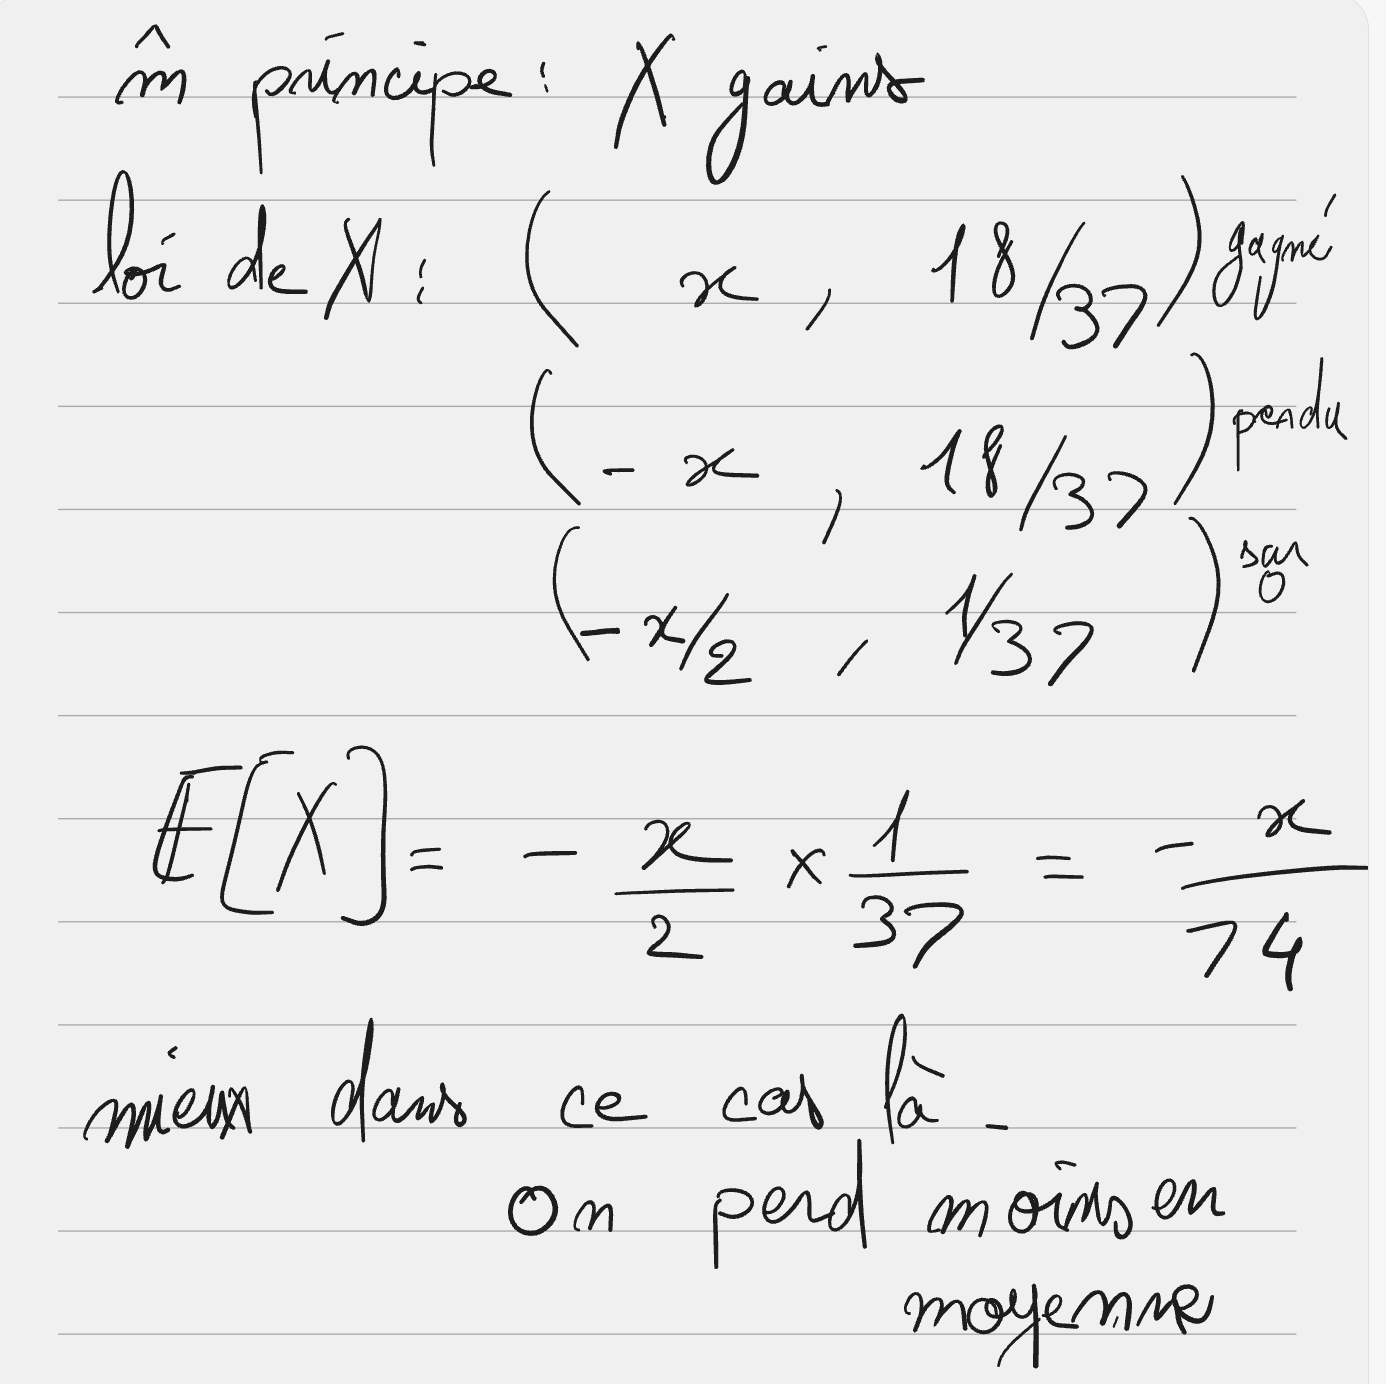 m̂ principe : X gains
loi de X : ( x , 18/37 ) gagné
( - x , 18/37 ) perdu
( - x/2 , 1/37 ) sur 0
E[X] = - x/2 × 1/37 = - x/74
mieux dans ce cas là -
On perd moins en
moyenne